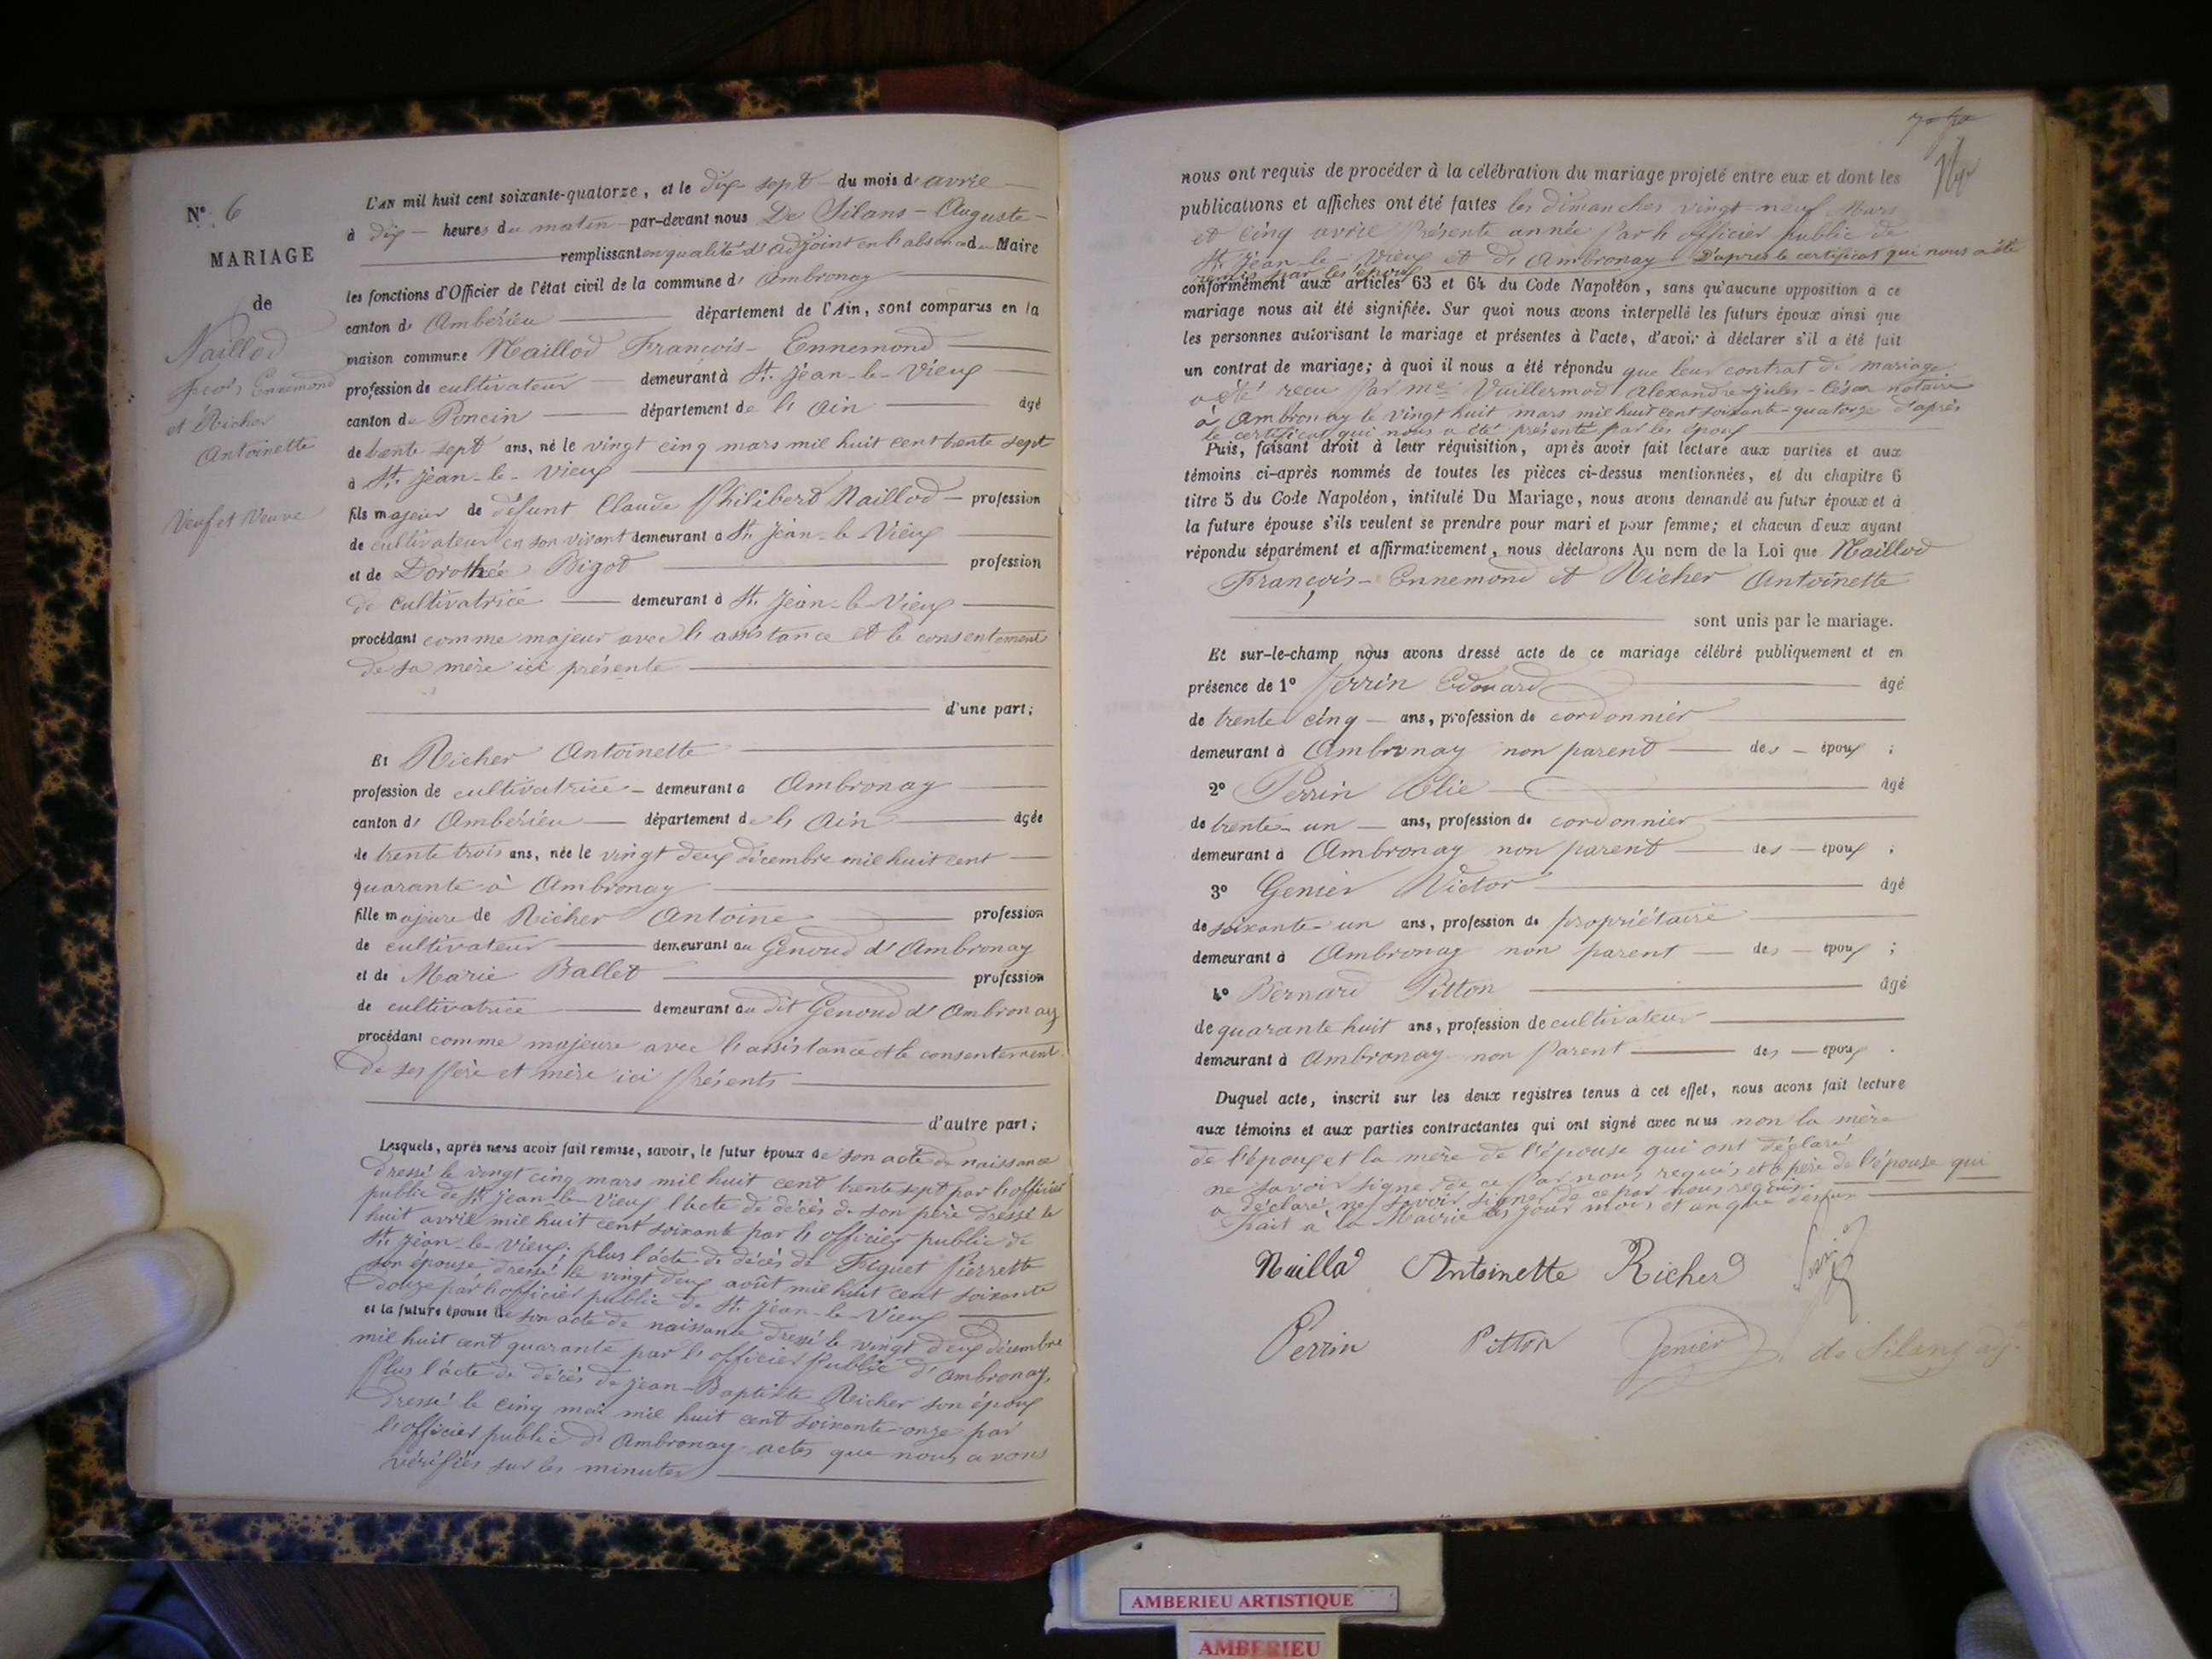 N° 6
MARIAGE
de
Naillod
Fçois Ennemond
et Richer
Antoinette
Veuf et Veuve
L'AN mil huit cent soixante-quatorze, et le dix sept du mois d'avril
à dix heures du matin par-devant nous De Silans - Auguste -
remplissant en qualité d'adjoint en l'absence du Maire
les fonctions d'Officier de l'état civil de la commune d' Ambronay
canton d' Ambérieu département de l'Ain, sont comparus en la
maison commune Naillod François - Ennemond
profession de cultivateur demeurant à St. Jean-le-Vieux
canton de Poncin département de l'Ain âgé
de trente sept ans, né le vingt cinq mars mil huit cent trente sept
à St. Jean-le-Vieux
fils majeur de défunt Claude Philibert Naillod profession
de cultivateur en son vivant demeurant à St. Jean-le-Vieux
et de Dorothée Bigot profession
de cultivatrice demeurant à St. Jean-le-Vieux
procédant comme majeur avec l'assistance et le consentement
de sa mère ici présente
d'une part;
Et Richer Antoinette
profession de cultivatrice demeurant à Ambronay
canton d' Ambérieu département de l'Ain âgée
de trente trois ans, née le vingt deux décembre mil huit cent
quarante à Ambronay
fille majeure de Richer Antoine profession
de cultivateur demeurant au Genoud d'Ambronay
et de Marie Ballet profession
de cultivatrice demeurant au dit Genoud d'Ambronay
procédant comme majeure avec l'assistance et le consentement
de ses père et mère ici présents
d'autre part;
Lesquels, après nous avoir fait remise, savoir, le futur époux de son acte de naissance
dressé le vingt cinq mars mil huit cent trente sept par l'officier
public de St. Jean-le-Vieux l'acte de décès de son père dressé le
huit avril mil huit cent soixante par l'officier public de
St. Jean-le-Vieux; plus l'acte de décès de Fiquet Pierrette
son épouse dressé le vingt deux août mil huit cent soixante
douze par l'officier public de St. Jean-le-Vieux
et la future épouse de son acte de naissance dressé le vingt deux décembre
mil huit cent quarante par l'officier public d'Ambronay,
Plus l'acte de décès de Jean-Baptiste Richer son époux
dressé le cinq mai mil huit cent soixante-onze par
l'officier public d'Ambronay actes que nous avons
vérifiés sur les minutes
nous ont requis de procéder à la célébration du mariage projeté entre eux et dont les
publications et affiches ont été faites les dimanches vingt-neuf Mars
et cinq avril Présente année Par l'officier public de
St. Jean-le-Vieux et d'Ambronay D'après le certificat qui nous a été
remis par les époux
conformément aux articles 63 et 64 du Code Napoléon, sans qu'aucune opposition à ce
mariage nous ait été signifiée. Sur quoi nous avons interpellé les futurs époux ainsi que
les personnes autorisant le mariage et présentes à l'acte, d'avoir à déclarer s'il a été fait
un contrat de mariage; à quoi il nous a été répondu que leur contrat de mariage
a été reçu Par me Vuillermod Alexandre-Jules-César notaire
à Ambronay le vingt huit mars mil huit cent soixante-quatorze d'après
le certificat qui nous a été présenté par les époux
Puis, faisant droit à leur réquisition, après avoir fait lecture aux parties et aux
témoins ci-après nommés de toutes les pièces ci-dessus mentionnées, et du chapitre 6
titre 5 du Code Napoléon, intitulé Du Mariage, nous avons demandé au futur époux et à
la future épouse s'ils veulent se prendre pour mari et pour femme; et chacun d'eux ayant
répondu séparément et affirmativement, nous déclarons Au nom de la Loi que Naillod
François-Ennemond et Richer Antoinette
sont unis par le mariage.
Et sur-le-champ nous avons dressé acte de ce mariage célébré publiquement et en
présence de 1° Perrin Edouard âgé
de trente cinq ans, profession de cordonnier
demeurant à Ambronay non parent des époux ;
2° Perrin Elie âgé
de trente-un ans, profession de cordonnier
demeurant à Ambronay non parent des époux ;
3° Genier Victor âgé
de soixante-un ans, profession de propriétaire
demeurant à Ambronay non parent des époux ;
4° Bernard Pitton âgé
de quarante huit ans, profession de cultivateur
demeurant à Ambronay non Parent des époux .
Duquel acte, inscrit sur les deux registres tenus à cet effet, nous avons fait lecture
aux témoins et aux parties contractantes qui ont signé avec nous non la mère
de l'époux et la mère de l'épouse qui ont déclaré
ne savoir signer de ce Par nous requis et le père de l'épouse qui
a déclaré ne savoir signer de ce par nous requis.
Fait à la Mairie les jour mois et an que dessus
Naillod Antoinette Richer
Perrin Pitton Genier de Silans adj.
AMBERIEU ARTISTIQUE
AMBERIEU